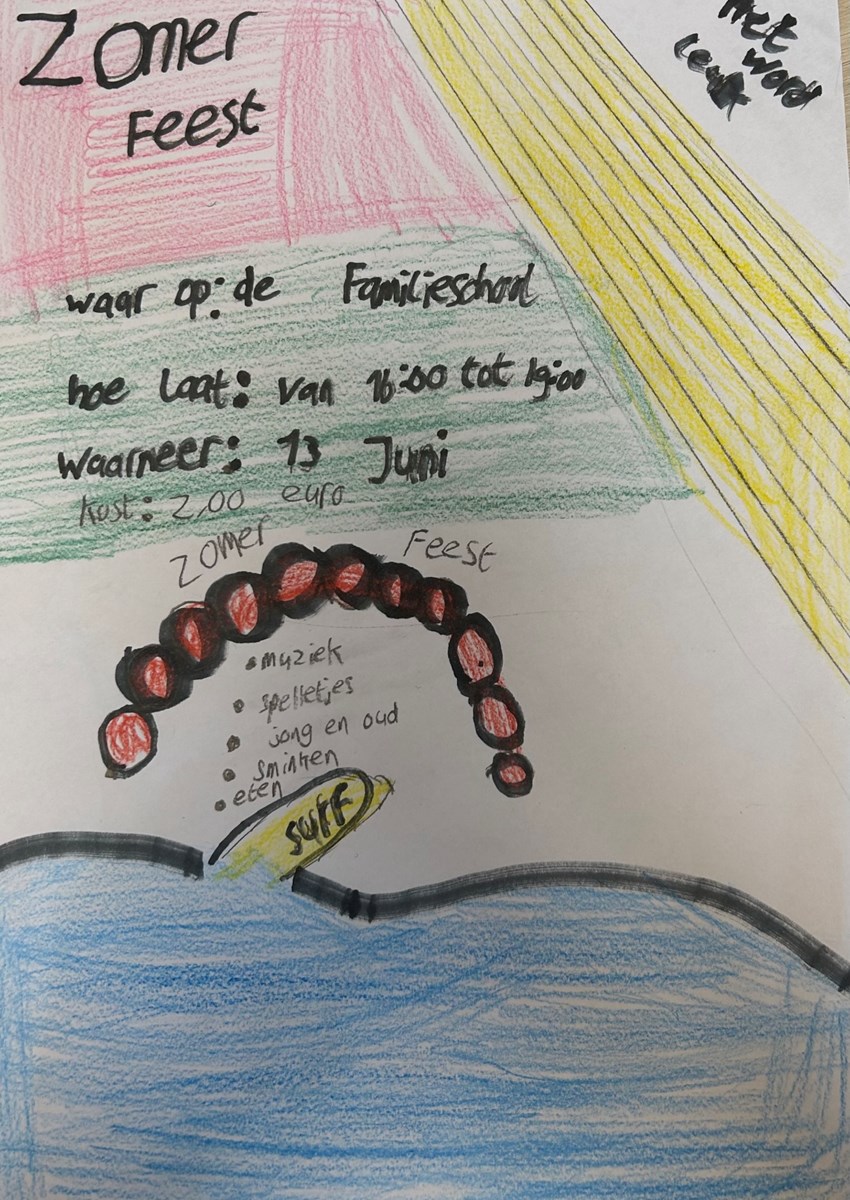 Zomer
Feest
Het
word
leuk
waar op: de Familieschool
hoe laat: van 16:00 tot 19:00
waarneer: 13 Juni
kost: 2,00 euro
Zomer Feest
• muziek
• spelletjes
• jong en oud
• sminken
• eten
surf